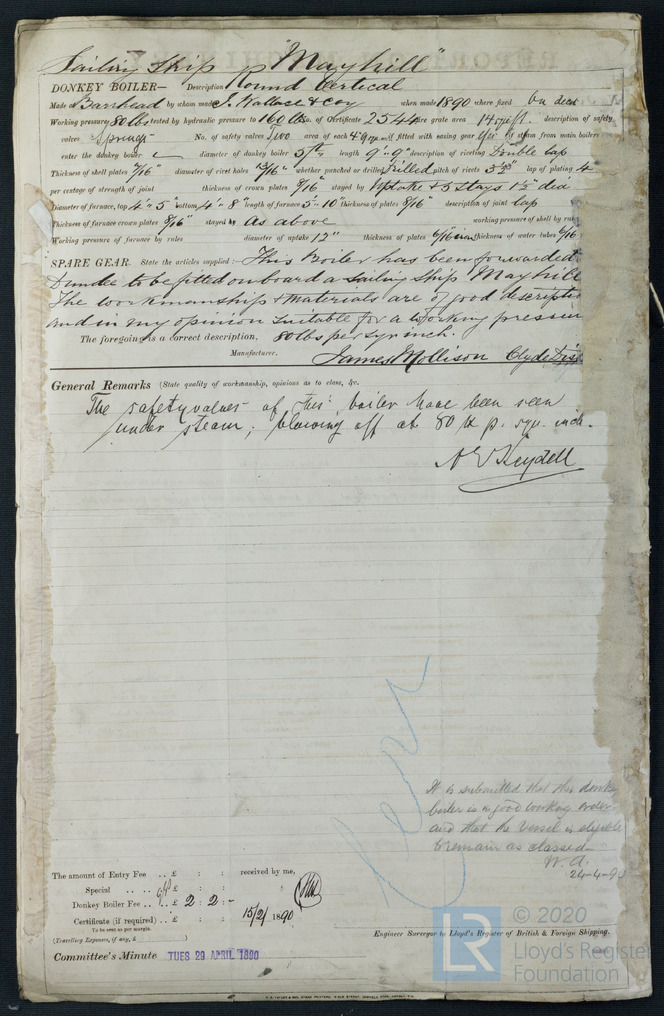 Sailing Ship "Mayhill"
DONKEY BOILER— Description Round Vertical
Made at Barrhead by whom made J. Wallace & Coy when made 1890 where fixed On deck
Working pressure 80 lbs tested by hydraulic pressure to 160 lbs No. of Certificate 2544 fire grate area 14 sq ft. description of safety
valves Spring No. of safety valves Two area of each 4.9 if fitted with easing gear Yes if steam from main boilers
enter the donkey boiler diameter of donkey boiler 5 ft length 9'-9" description of riveting Double lap
Thickness of shell plates 7/16" diameter of rivet holes 13/16" whether punched or drilled Drilled pitch of rivets lap of plating 4
per centage of strength of joint thickness of crown plates 9/16 stayed by Uptake & 5 Stays 1½" dia
Diameter of furnace, top 4'-5" bottom 4'-8" length of furnace 5'-10" thickness of plates 8/16" description of joint lap
Thickness of furnace crown plates 8/16" stayed by As above working pressure of shell by rules
Working pressure of furnace by rules diameter of uptake 12" thickness of plates 6/16 thickness of water tubes 6/16
SPARE GEAR. State the articles supplied:— This Boiler has been forwarded
Dundee to be fitted onboard a sailing ship Mayhill
The workmanship & materials are of good descriptio
and in my opinion suitable for a working pressur
The foregoing is a correct description, 80 lbs per sqr inch.
Manufacturer. James Mollison Clyde Dis
General Remarks (State quality of workmanship, opinions as to class, &c.
The safety valves of this boiler have been seen
under steam; blowing off at 80 lb p. sqr. inch.
It is submitted that this donkey
boiler is in good working order
and that the Vessel is eligible
to remain as classed
W. A.
24-4-9
The amount of Entry Fee .. £ : : received by me,
Special .. .. £ : :
Donkey Boiler Fee .. £ 2 : 2 : -
Certificate (if required) .. £ : : 15/2/1890
To be sent as per margin.
(Travelling Expenses, if any, £ )
Engineer Surveyor to Lloyd's Register of British & Foreign Shipping.
Committee's Minute TUES 29 APRIL 1890
© 2020
LR
Lloyd's Register
Foundation